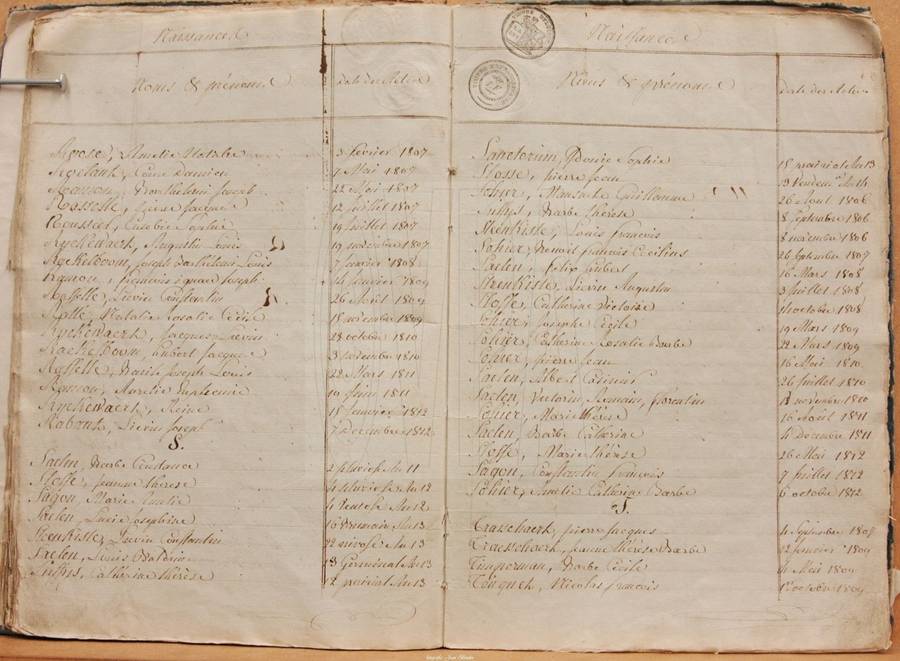 Naissances
Noms & prénoms date des Actes
Amelie 3 fevrier 1807
Damien 7 Mai 1807
Barthelemi Joseph 22 Mai 1807
Rosselle, Pierre Jacques 12 Juillet 1807
Rousseel, Eusebie Sophie 19 Juillet 1807
Ryckewaert, Augustin Louis 19 novembre 1807
Rackelboom, Joseph Barthelemi Louis 7 Janvier 1808
Ramon, françois ignace Joseph 14 Janvier 1809
Rosselle, Lievin Constantin 26 Août 1809
Natalie Rosalie Cécile 18 novembre 1809
Ryckewaert, Jacques Lievin 28 octobre 1810
Rackelboom, hubert Jacques 3 novembre 1810
Rosselle, Joseph Louis 22 Mars 1811
Ramon, Euphemie 10 Juin 1811
Ryckewaert, Reine 15 Janvier 1812
Lievin Joseph 7 Decembre 1812
S.
Saelen, Barbe Constance 2 pluviose An 11
Stoffe, Jeanne thérèse An 12
Sagon, Marie Amelie 4 An 12
Saelen, Lucie Josephine 16 Brumaire An 13
Steenkiste, Lievin Constantin 22 nivose An 13
Saelen, Louis 13 Germinal An 13
Catherine thérèse 2 prairial An 13
Naissances
Noms & prénoms date des Actes
Sophie 18 prairial An 13
Stosse, pierre Jean 13 Vendem. An 14
Sohier, Guillaume 26 Août 1806
Barbe thérèse 8 Septembre 1806
Steenkiste, Louis françois 8 novembre 1806
Sohier, Benoit françois 26 Septembre 1807
Saelen, felix hubert 16 Mars 1808
Steenkiste, Lievin Augustin 3 Juillet 1808
Stoffe, Catherine Victoire 14 octobre 1808
Sohier, Joseph Cécile 19 Mars 1809
Sohier, Catherine Rosalie Barbe 22 Mars 1809
Sohier, pierre Jean 16 Mai 1810
Saelen, Albert Casimir 26 Juillet 1810
Saelen, Victorin Romain, florentin novembre 1810
Sohier, Marie thérèse 16 Août 1811
Saelen, Barbe Catherine 4 Décembre 1811
Stoffe, Marie thérèse 26 Mai 1812
Sagon, Constantin françois 7 Juillet 1812
Sohier, Amelie Catherine Barbe 6 octobre 1812
Craeschaert, pierre Jacques 4 Septembre
Craesschaert, Jeanne thérèse Barbe 12 Janvier 1809
Timperman, Barbe Cécile 4 Mai 1809
Nicolas françois octobre 1809